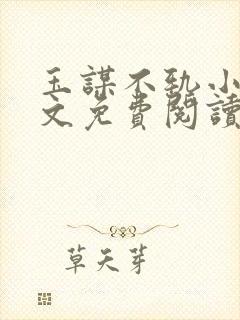 玉謀不執小
文免費閱讀
草天芽